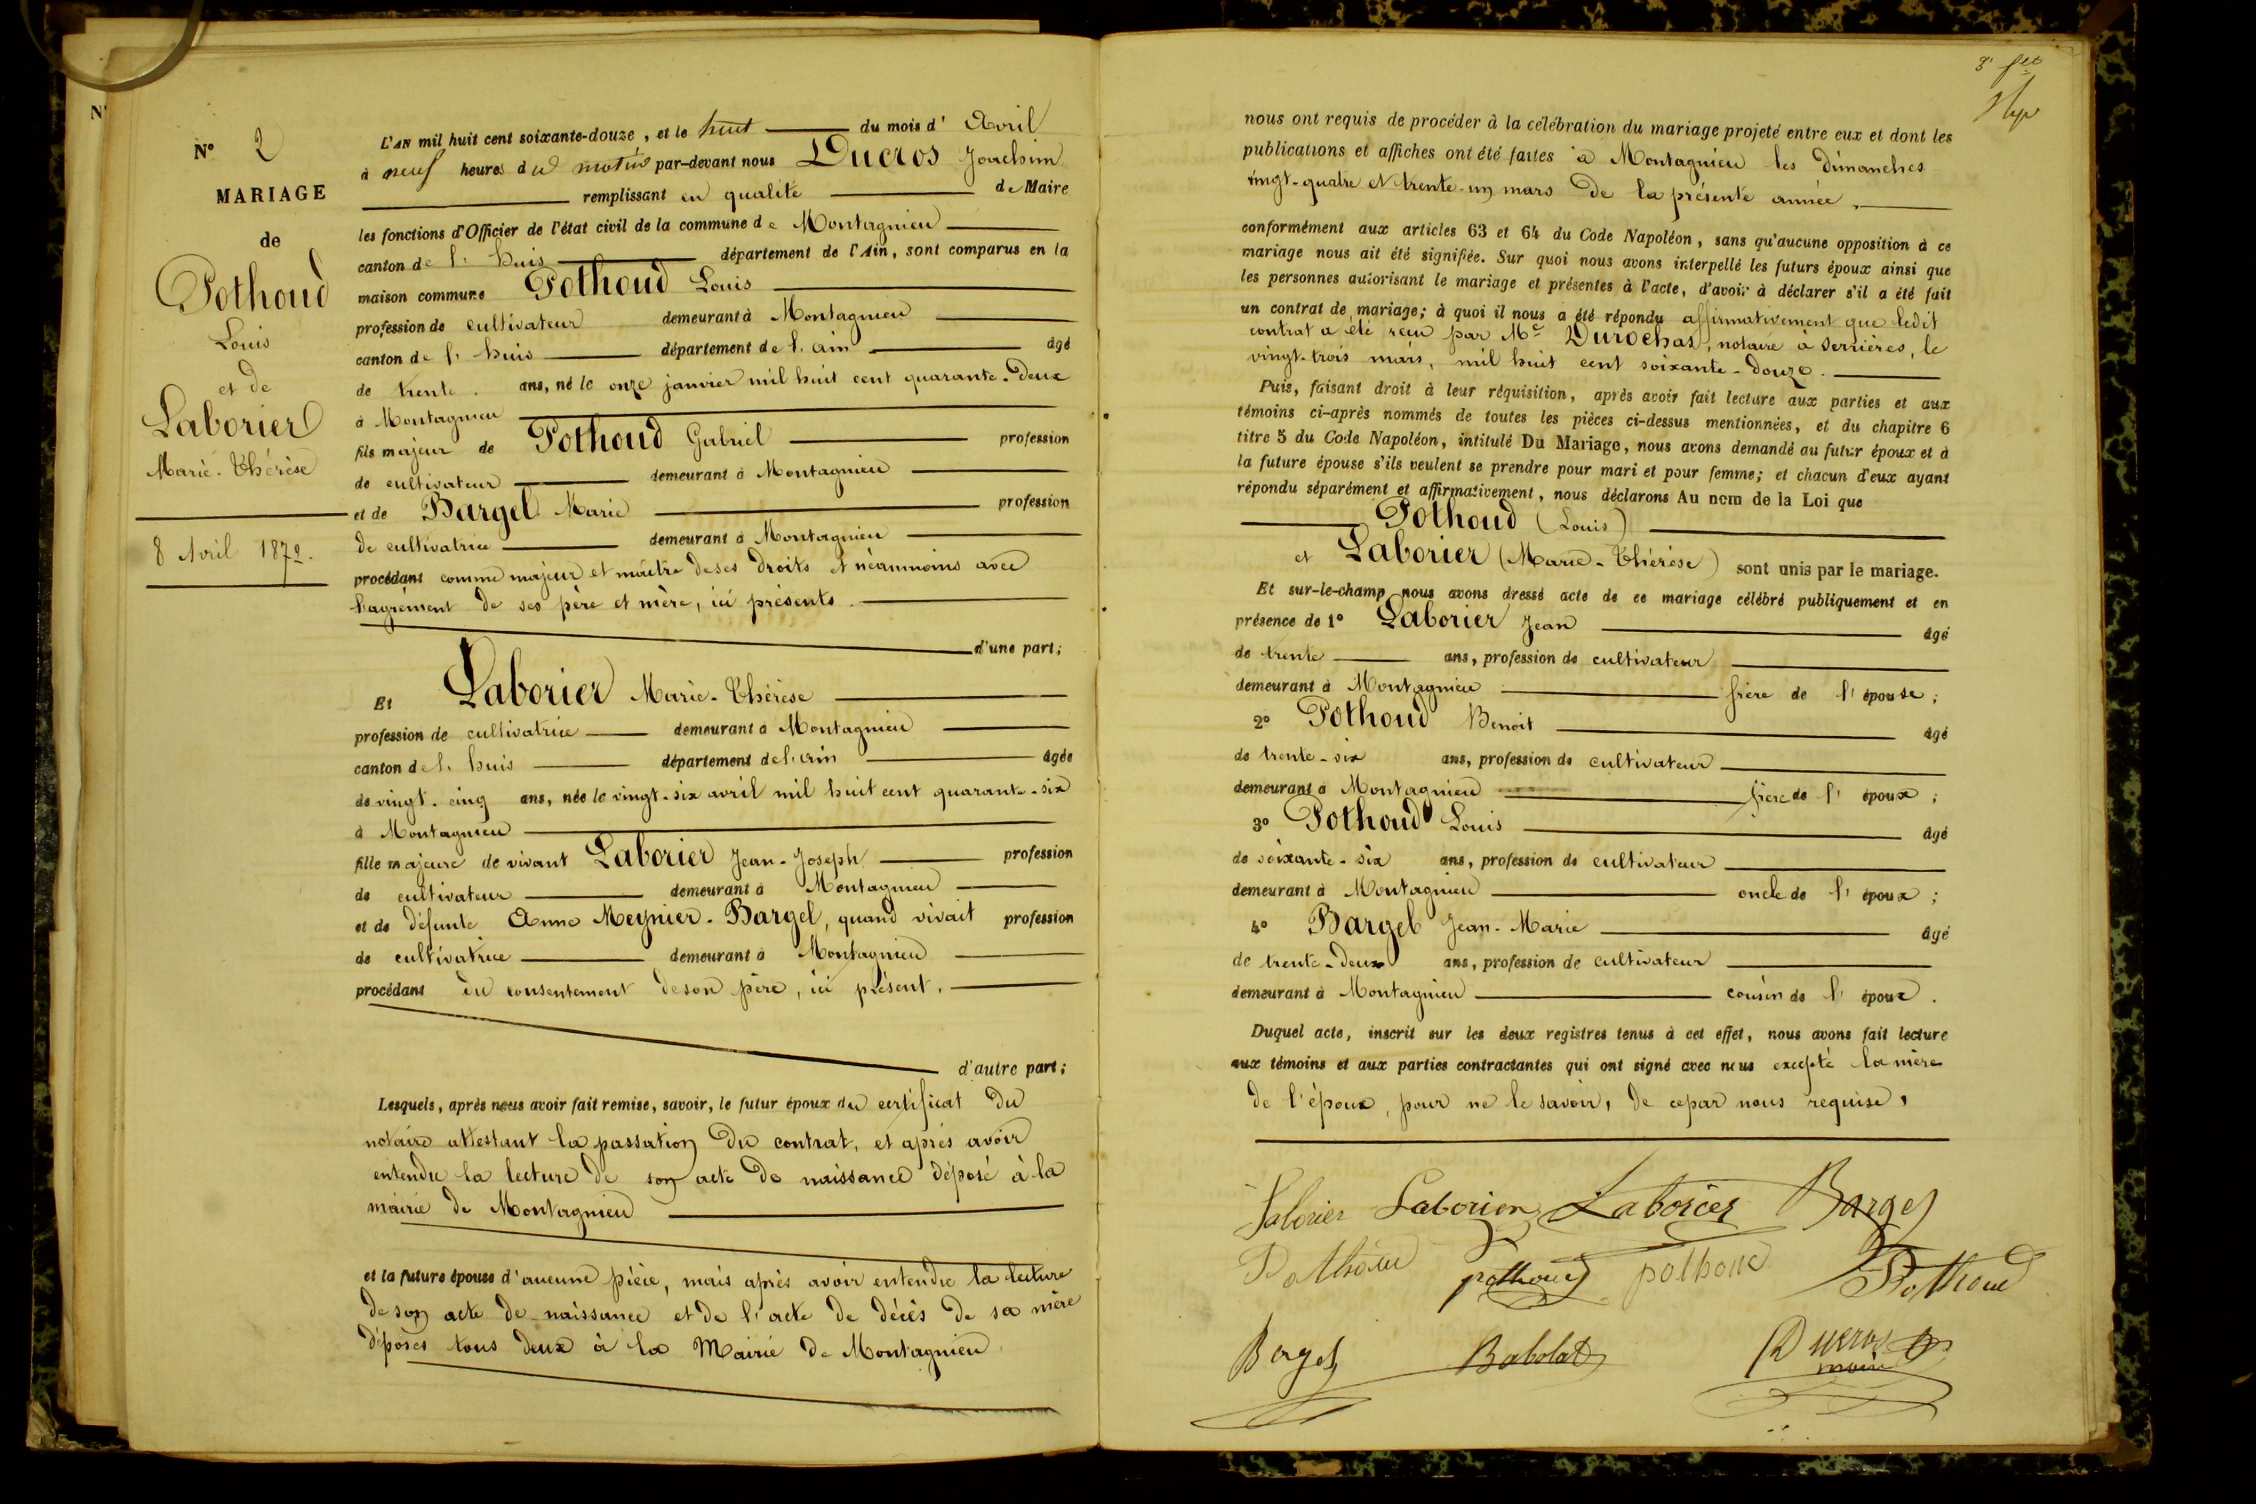 N°
N° 2
MARIAGE
de
Pothoud
Louis
et de
Laborier
Marie-Thérèse
8 Avril 1872.
L'AN mil huit cent soixante-douze, et le huit du mois d' Avril
à neuf heures du matin par-devant nous Ducros Joachim
remplissant en qualité de Maire
les fonctions d'Officier de l'état civil de la commune de Montagnieu
canton de l'huis département de l'Ain, sont comparus en la
maison commune Pothoud Louis
profession de cultivateur demeurant à Montagnieu
canton de l'huis département de l'ain âgé
de trente ans, né le onze janvier mil huit cent quarante-deux
à Montagnieu
fils majeur de Pothoud Gabriel profession
de cultivateur demeurant à Montagnieu
et de Bargel Marie profession
de cultivatrice demeurant à Montagnieu
procédant comme majeur et maître de ses droits et néanmoins avec
l'agrément de ses père et mère, ici présents.
d'une part;
Et Laborier Marie-Thérèse
profession de cultivatrice demeurant à Montagnieu
canton de l'huis département de l'ain âgée
de vingt-cinq ans, née le vingt-six avril mil huit cent quarante-six
à Montagnieu
fille majeure de vivant Laborier Jean-Joseph profession
de cultivateur demeurant à Montagnieu
et de défunte Anne Meynier-Bargel, quand vivait profession
de cultivatrice demeurant à Montagnieu
procédant du consentement de son père, ici présent.
d'autre part;
Lesquels, après nous avoir fait remise, savoir, le futur époux du certificat du
notaire attestant la passation du contrat, et après avoir
entendu la lecture de son acte de naissance déposé à la
mairie de Montagnieu
et la future épouse d'aucune pièce, mais après avoir entendu la lecture
de son acte de naissance et de l'acte de décès de sa mère
déposés tous deux à la Mairie de Montagnieu
nous ont requis de procéder à la célébration du mariage projeté entre eux et dont les
publications et affiches ont été faites à Montagnieu les dimanches
vingt-quatre et trente-un mars de la présente année,
conformément aux articles 63 et 64 du Code Napoléon, sans qu'aucune opposition à ce
mariage nous ait été signifiée. Sur quoi nous avons interpellé les futurs époux ainsi que
les personnes autorisant le mariage et présentes à l'acte, d'avoir à déclarer s'il a été fait
un contrat de mariage; à quoi il nous a été répondu affirmativement que ledit
contrat a été reçu par Me Durochas, notaire à Serrières, le
vingt-trois mars, mil huit cent soixante-douze.
Puis, faisant droit à leur réquisition, après avoir fait lecture aux parties et aux
témoins ci-après nommés de toutes les pièces ci-dessus mentionnées, et du chapitre 6
titre 5 du Code Napoléon, intitulé Du Mariage, nous avons demandé au futur époux et à
la future épouse s'ils veulent se prendre pour mari et pour femme; et chacun d'eux ayant
répondu séparément et affirmativement, nous déclarons Au nom de la Loi que
Pothoud (Louis)
et Laborier (Marie-Thérèse) sont unis par le mariage.
Et sur-le-champ nous avons dressé acte de ce mariage célébré publiquement et en
présence de 1° Laborier Jean âgé
de trente ans, profession de cultivateur
demeurant à Montagnieu frère de l'épouse;
2° Pothoud Benoit âgé
de trente-six ans, profession de cultivateur
demeurant à Montagnieu frère de l'époux;
3° Pothoud Louis âgé
de soixante-six ans, profession de cultivateur
demeurant à Montagnieu oncle de l'époux;
4° Bargel Jean-Marie âgé
de trente-deux ans, profession de cultivateur
demeurant à Montagnieu cousin de l'époux.
Duquel acte, inscrit sur les deux registres tenus à cet effet, nous avons fait lecture
aux témoins et aux parties contractantes qui ont signé avec nous excepté la mère
de l'époux, pour ne le savoir, de ce par nous requise,
Laborier Laborier Laborier Bargel
Pothoud pothoud pothoud Pothoud
Bargel Babolat Ducros
maire